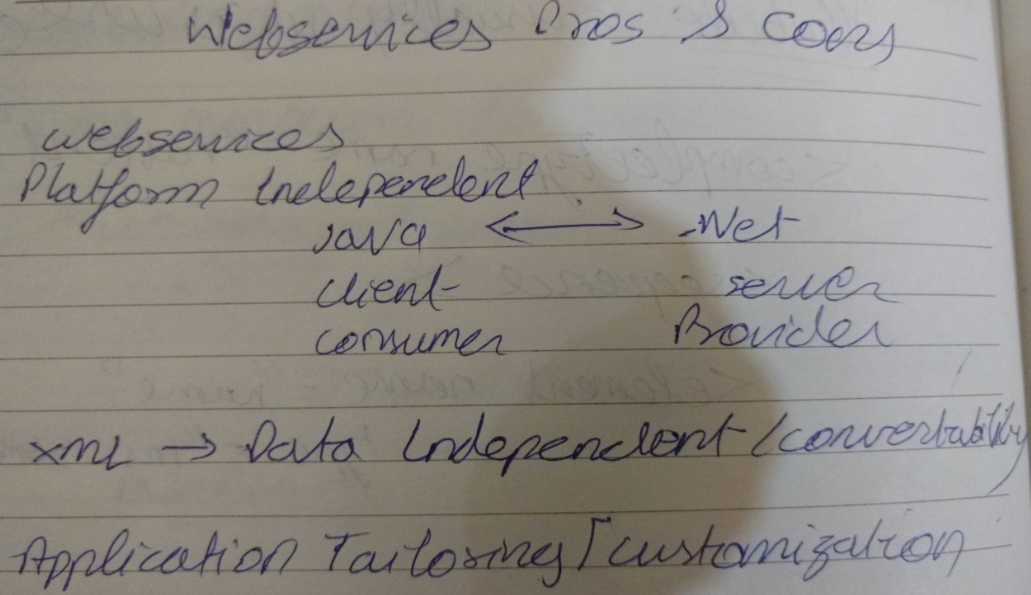 Webservices Pros & Cons
webservices
Platform Independent
Java <-> .Net
client server
consumer Provider
XML -> Data Independent (convertability)
Application Tailoring/customization